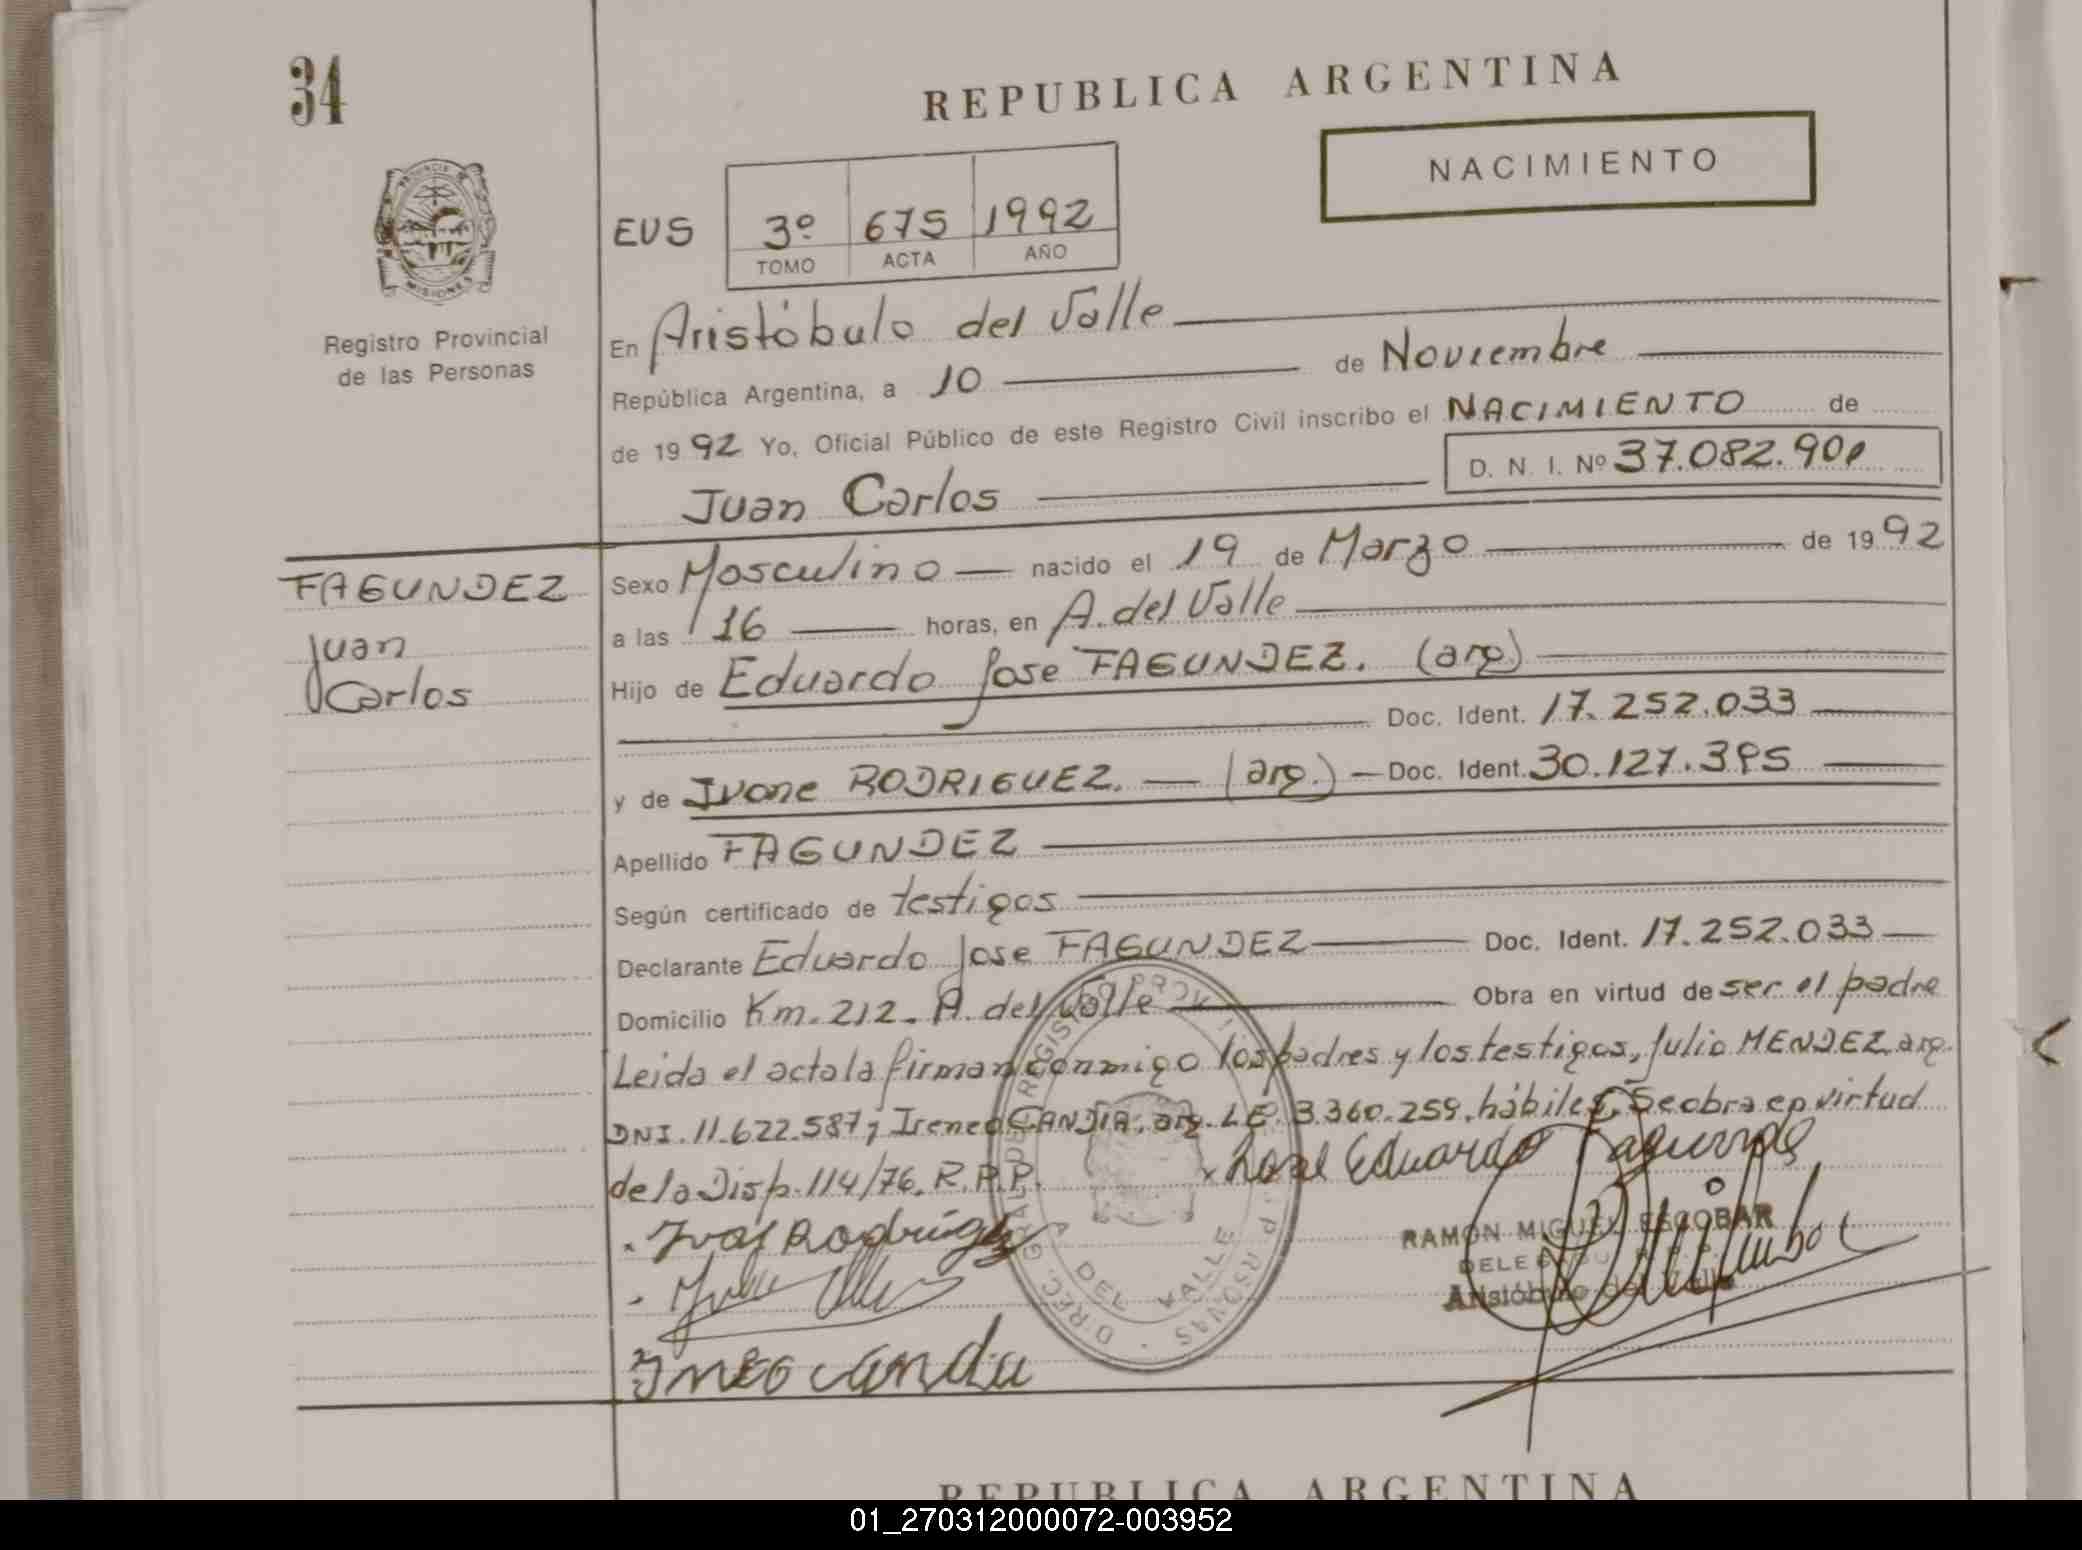 34
REPUBLICA ARGENTINA
NACIMIENTO
PROVINCIA DE
MISIONES
Registro Provincial
de las Personas
EVS 3º 675 1992
TOMO ACTA AÑO
En Aristóbulo del Valle
República Argentina, a 10 de Noviembre
de 1992 Yo, Oficial Público de este Registro Civil inscribo el NACIMIENTO de
Juan Carlos D. N. I. Nº 37.082.901
FAGUNDEZ
Juan
Carlos
Sexo Masculino nacido el 19 de Marzo de 1992
a las 16 horas, en A. del Valle
Hijo de Eduardo Jose FAGUNDEZ. (arg.)
Doc. Ident. 17.252.033
y de Ivone RODRIGUEZ. (arg.) Doc. Ident. 30.127.395
Apellido FAGUNDEZ
Según certificado de testigos
Declarante Eduardo Jose FAGUNDEZ Doc. Ident. 17.252.033
Domicilio Km. 212. A. del Valle Obra en virtud de ser el padre
Leida el acta la firman conmigo los padres y los testigos, Julio MENDEZ. arg.
DNI. 11.622.587; Ireneo CANDIA. arg. L.E. 3.360.259. hábiles. Se obra en virtud
de la Disp. 114/76. R.P.P.
Eduardo
RAMON MIGUEL ESCOBAR
Aristóbulo del Valle
DEL VALLE
REPUBLICA ARGENTINA
01_270312000072-003952